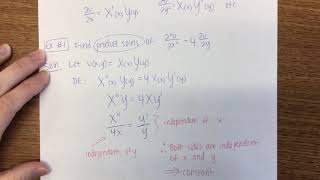 ∂u/∂x = X'(x) Y(y) ∂²u/∂y² = X(x) Y''(y) etc
Ex #1 Find product solns of ∂²u/∂x² = 4 ∂u/∂y
Soln Let u(x,y) = X(x) Y(y)
DE: X''(x) Y(y) = 4 X(x) Y'(y)
X''Y = 4XY'
X''/4X = Y'/Y
independent of x
independent of y
∴ Both sides are independent
of x and y
⟹ constant